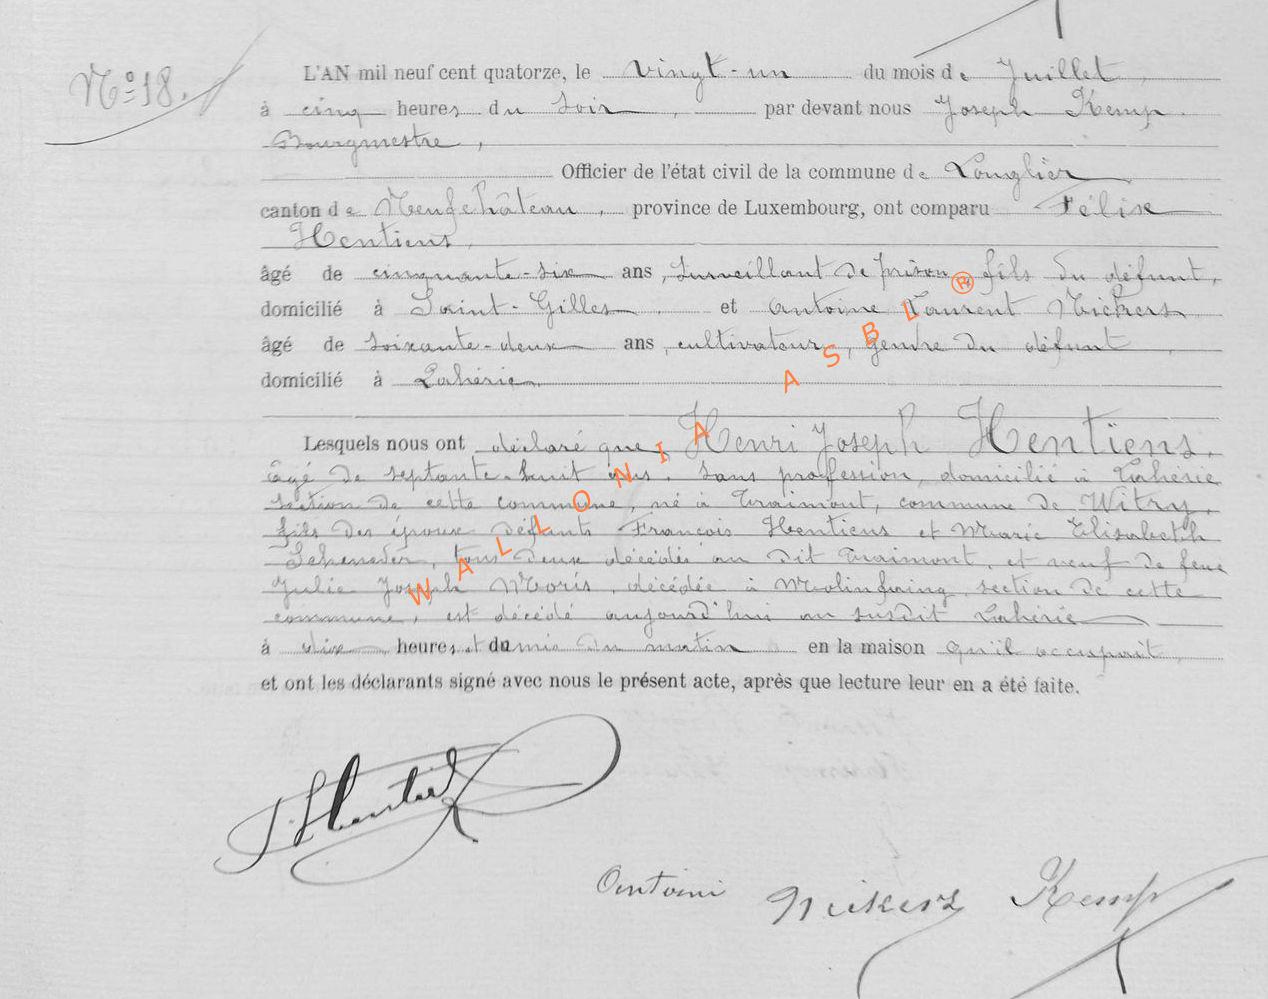 N° 18.
L'AN mil neuf cent quatorze, le vingt-un du mois de Juillet
à cinq heures du soir, par devant nous Joseph Kemp
Bourgmestre,
Officier de l'état civil de la commune de Longlier
canton de Neufchâteau, province de Luxembourg, ont comparu Félix
Hentiens,
âgé de cinquante-six ans, surveillant de prison fils du défunt,
domicilié à Saint-Gilles et Antoine Laurent Nickers
âgé de soixante-deux ans, cultivateur, gendre du défunt
domicilié à Lahérie
Lesquels nous ont déclaré que Henri Joseph Hentiens,
âgé de septante-huit ans, sans profession, domicilié à Lahérie
section de cette commune, né à Traimont, commune de Witry,
fils des époux défunts François Hentiens et Marie Elisabeth
tous deux décédés au dit Traimont, et veuf de feue
Julie Joseph Moris, décédée à Molinfaing, section de cette
commune, est décédé aujourd'hui au susdit Lahérie
à dix heures et demie du matin en la maison qu'il occupait
et ont les déclarants signé avec nous le présent acte, après que lecture leur en a été faite.
WALLONIA ASBL ®
Antoine Nickers Kemp